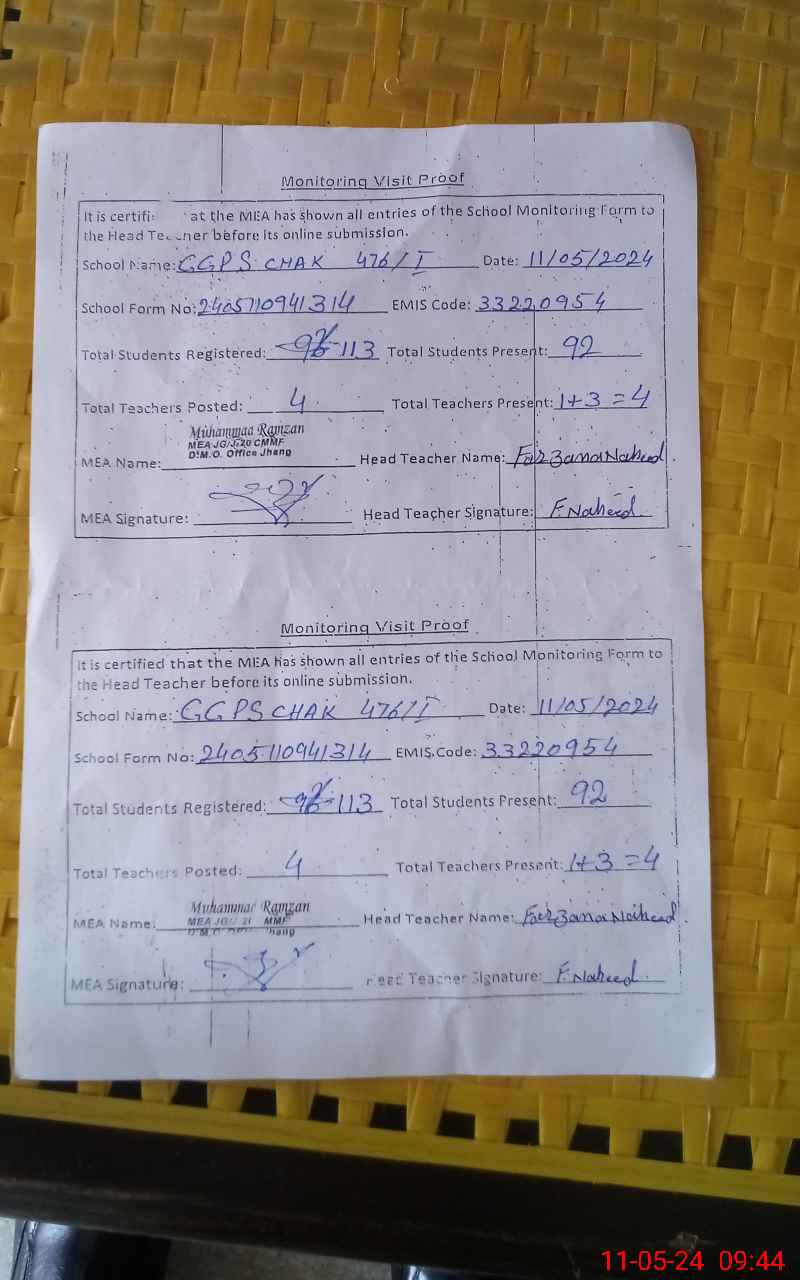 Monitoring Visit Proof
It is certifi at the MEA has shown all entries of the School Monitoring Form to
the Head Teacher before its online submission.
School Name: GGPS CHAK 476/I Date: 11/05/2024
School Form No: 2405110941314 EMIS Code: 33220954
Total Students Registered: 113 Total Students Present: 92
Total Teachers Posted: 4 Total Teachers Present: 1+3=4
Muhammad Ramzan
MEA JG/J-20 CMMF
D.M.O. Office Jhang
MEA Name: Head Teacher Name: Farzana Naheed.
MEA Signature: Head Teacher Signature: F.Naheed.
Monitoring Visit Proof
It is certified that the MEA has shown all entries of the School Monitoring Form to
the Head Teacher before its online submission.
School Name: GGPS CHAK 476/I Date: 11/05/2024
School Form No: 2405110941314 EMIS Code: 33220954
Total Students Registered: 113 Total Students Present: 92
Total Teachers Posted: 4 Total Teachers Present: 1+3=4
Muhammad Ramzan
MEA JG/ MMF
Jhang
MEA Name: Head Teacher Name: Farzana Naheed.
MEA Signature: Head Teacher Signature: F.Naheed.
11-05-24 09:44